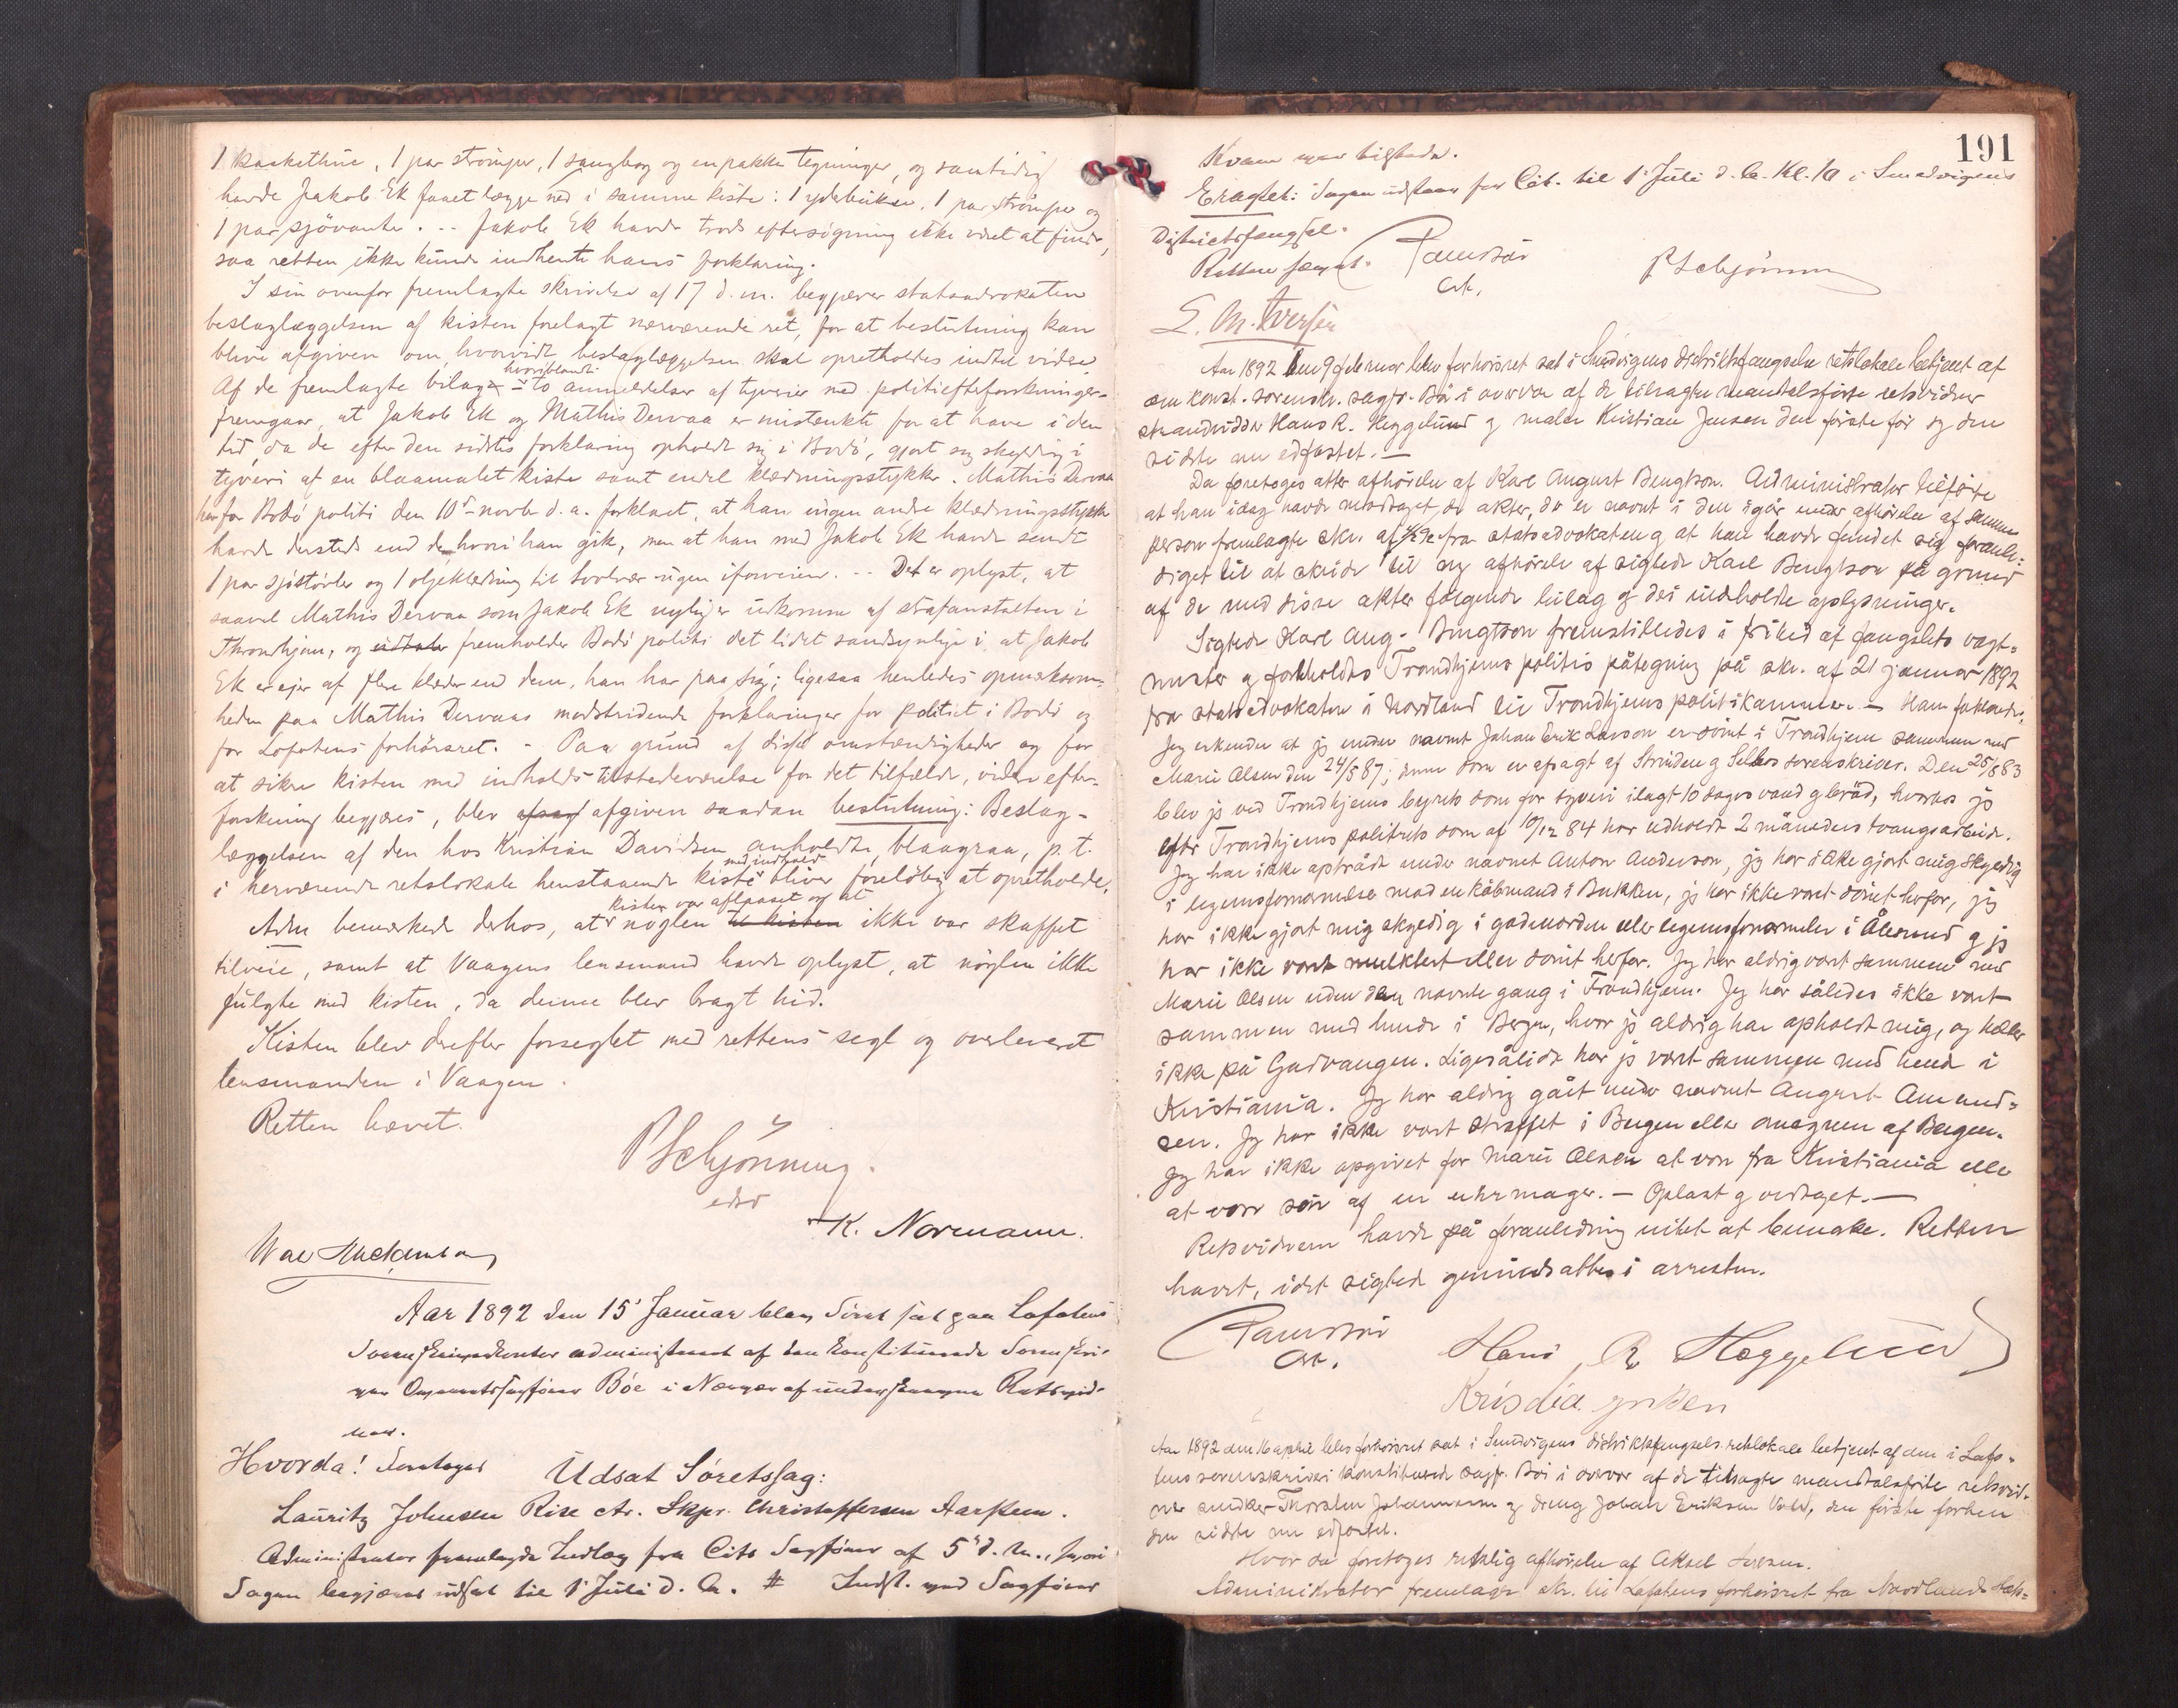 1 kaskethue, 1 par strømper, 1 sangbog og en pakke tegninger, og samtidig
havde Jakob Ek faaet lægge ned i samme kiste: 1 yderbukse, 1 par strømper og
1 par sjövanter. -- Jakob Ek havde trods eftersøgning ikke været at finde,
saa retten ikke kunde indhente hans forklaring.
I sin ovenfor fremlagte skrivelse af 17 d. m. begjærer statsadvokaten
beslaglæggelsen af kisten forelagt nærværende ret, for at beslutning kan
blive afgiven om, hvorvidt beslaglæggelsen skal opretholdes indtil videre.
hvoriblandt
Af de fremlagte bilage to anmeldelser af tyverier med politiefterforskninger-
fremgaar, at Jakob Ek og Mathis Dervaa er mistænkte for at have i den
tid, da de efter den sidstes forklaring opholdt sig i Bodö, gjort sig skyldig i
tyveri af en blaamalet kiste samt endel klædningsstykker. Mathis Dervaa
har for Bodö politi den 10de novbr d. a. forklaret, at han ingen andre klædningsstykker
havde dersteds end de hvori han gik, men at han med Jakob Ek havde sendt
1 par sjöstövler og 1 oljeklædning til Svolvær ugen iforveien. -- Det er oplyst, at
saavel Mathis Dervaa som Jakob Ek nylig er udkomne af strafanstalten i
Throndhjem, og udtaler fremholder Bodö politi det lidet sandsynlige i, at Jakob
Ek er ejer af flere klæder end dem, han har paa sig; ligesaa henledes opmærksom-
heden paa Mathis Dervaas modstridende forklaringer for politiet i Bodö og
for Lofotens forhörsret. - Paa grund af disse omstændigheder og for
at sikre kisten med indholds tilstedeværelse for det tilfælde, videre efter-
forskning begjæres, blev afsagt afgiven saadan beslutning: Beslag-
læggelsen af den hos Kristian Davidsen anholdte, blaagraa, p. t.
med indhold
i herværende retslokale henstaaende kiste bliver foreløbig at opretholde.
kisten var aflaaset og at
Adm bemærkede derhos, at nøglen til kisten ikke var skaffet
tilveie, samt at Vaagens lensmand havde oplyst, at nøglen ikke
fulgte med kisten, da denne blev bragt hid.
Kisten blev derefter forseglet med rettens segl og overleveret
lensmanden i Vaagen.
Retten hævet.
P Schjönning.
edsv
K. Normann.
Aar 1892 den 15' Januar blev Söret sat paa Lofotens
Sorenskriverkontor administreret af den konstituerede Sorenskri-
ver Overretssagförer Böe i Nærvær af underskrevne Retsvid-
ner.
Hvorda! Foretages Udsat Söretssag:
Lauritz Johnsen Rise ctr. Skpr. Christoffersen Aarsteen.
Administrator fremlagde Indlæg fra Cits Sagförer af 5' d. M., hvori
Sagen begjæres udsat til 1' Juli d. A. # Indst. ved Sagförer
191
Kvam var tilstede.
Eragtet: Sagen udstaar for Cit. til 1' Juli d. A. Kl. 10 i Smedvigens
Districtsfængsel.
Retten hævet.
Cst.
P Schjönning
L. M. Iversen
Aar 1892 den 9 februar blev forhørsret sat i Smedvigens distriktsfængsels retslokale betjent af
den konst. sorenskr. sagfr. Bö i overvær af de tilsagte mandtalsførte retsvidner
strandsidder Hans R. Heggelund og maler Kristian Jensen den første før og den
sidste nu edfæstet. —
Da foretoges atter afhørelse af Karl August Bengtson. Administrator tilførte
at han idag havde modtaget de akter, der er nævnt i den igår under afhørelse af samme
person fremlagte skr. af 4/2 92 fra statsadvokaten og at han havde fundet sig foranle-
diget til at skride til ny afhørelse af sigtede Karl Bengtson på grund
af de med disse akter følgende bilag og des indholdte oplysninger.
Sigtede Karl Aug. Bengtson fremstilledes i frihed af fængslets vagt-
mester og forholdtes Trondhjems politis påtegning på skr. af 21 januar 1892
fra statsadvokaten i Nordland til Trondhjems politikammer. — Han forklarte:
Jeg erkender at jeg under navnet Johan Erik Larson er dömt i Trondhjem sammen med
Marie Olsen den 24/5 87; dom som er afsagt af Strinden og Selbos sorenskriver. Den 25/8 83
blev jeg ved Trondhjems byrets dom for tyveri ilagt 10 dages vand og bröd, hvorhos jeg
efter Trondhjems politirets dom af 10/12 84 har udholdt 2 måneders tvangsarbeide.
Jeg har ikke optrådt under navnet Anton Anderson, jeg har ikke gjort mig skyldig
i legemsfornærmelse mod en købmand i Bukken, jeg har ikke været dömt herfor, jeg
har ikke gjort mig skyldig i gadeuorden eller legemsfornærmelse i Ålesund og jeg
har ikke været mulkteret eller dömt herfor. Jeg har aldrig været sammen med
Marie Olsen uden den nævnte gang i Trondhjem. Jeg har således ikke været
sammen med hende i Bergen, hvor jeg aldrig har opholdt mig, og heller
ikke på Gudvangen. Ligesålidt har jeg været sammen med hende i
Kristiania. Jeg har aldrig gået under navnet August Amund-
sen. Jeg har ikke været straffet i Bergen eller omegnen af Bergen.
Jeg har ikke opgivet for Marie Olsen at være fra Kristiania eller
at være sön af en uhrmager. — Oplæst og vedtaget. —
Retsvidnerne havde på foranledning intet at bemærke. Retten
hævet, idet sigtede gjenindsattes i arresten.
Cst.
Hans R Heggelund
Aar 1892 den 16 april blev forhørsret sat i Smedvigens distriktsfængsels retslokale betjent af den i Lofo-
tens sorenskriveri konstituerede sagfr. Böe i overvær af de tilsagte mandtalsførte retsvid-
ner snedker Thorsten Johannesen og dreng Johan Eriksen Vold, den første forhen
den sidste nu edfæstet.
Hvor da foretoges retslig afhørelse af Aksel Iversen.
Administrator fremlagde skr. til Lofotens forhørsret fra Nordlands stats-